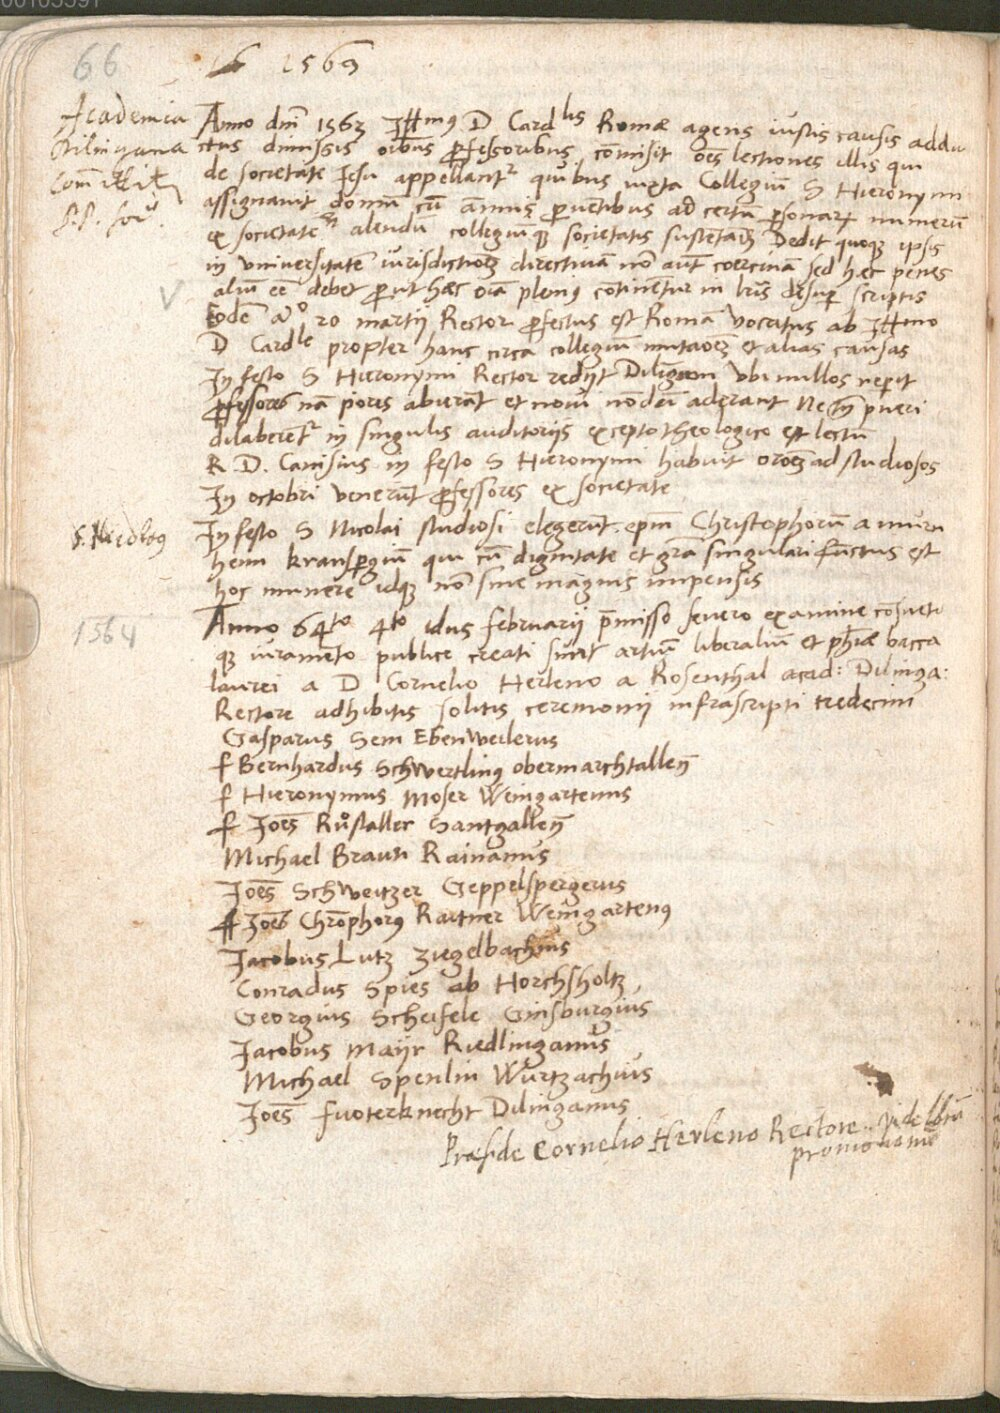 66
1569
Academia
Dilingana
S. Nicolaus
1564
Anno dm̄ 1563 Illmꝰ D Cardlis Romæ agens iustis causis addu
ctus dimissis oībus ꝓfessoribus cōmisit oēs lectiones illis qui
de societate Iesu appellant quibus iuxta Collegiū S Hieronymi
assignauit domū cū annuis ꝓuētibus ad certū ꝑsonarꝝ numerū
ex societate alendū collegiūqꝫ societatis Dedit quoqꝫ ipsis
in vniuersitate iurisdictioēꝫ directiuā nō aūt coerciuā sed hæc penes
aliū eē debet ꝓut hæc oīa pleniꝰ cōtinētur in lrīs desuꝑ scriptis
Eodē aº 20 martij Rector ꝓfectus est Romā vocatus ab Illmo
D Cardle propter hanc circa collegiū mutaōēꝫ et alias causas
In festo S Hieronymi Rector redijt Dilingam vbi nullos reꝑit
ꝓfessores nā pōres abierāt et noui nōdū aderant Ne pueri
dilaberēt in singulis auditorijs excepto theologico est lectū
R. D. Canisius in festo S Hieronymi habuit orōēꝫ ad studiosos
In octobri venerūt ꝓfessores ex societate
In festo S Nicolai studiosi elegerūt epm̄ Christophorū a
heim kranspergiū qui cū dignitate et grā singulari functus est
hoc munere idqꝫ nō sine magnis impensis
Anno 64to 4to idus februarij p̄misso seuero examine cōsueto
qꝫ iuramēto publice creati sunt artiū liberaliū et phīæ bacca
laurei a D Cornelio Herleno a Rosenthal acad: Dilinga:
Rectore adhibitis solitis ceremonij infrascripti tredecim
Gasparus Sem Ebenweilerus
f Bernhardus Schwertlinꝰ obermarchtalleñ
f Hieronymus Moser Weingartenus
f Joēs Růstaller Santgalleñ
Michael Braun Rainanus
Joēs Schweitzer Geppelspergerus
ff Joēs Chrōphorꝰ Raitner Weingartenꝰ
Jacobus Lutz Ziegelbachius
Conradus Spies ab Horchsholtz
Georgius Scheifele Ginsburgius
Jacobus Mayr Riedlinganus
Michael Spenlin Wurtzachius
Joēs fuoterknecht Dilinganus
Præside Cornelio Herleno Rectore. vide